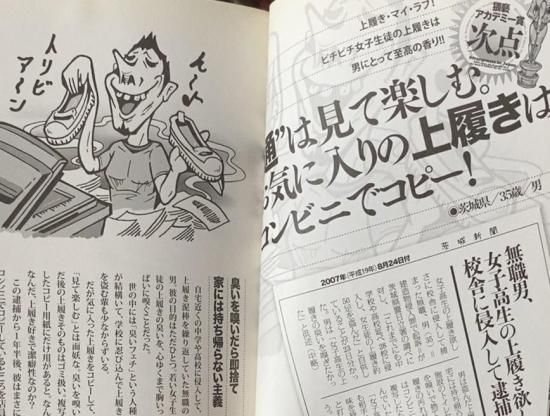 上履き・マイ・ラブ！
ピチピチ女子生徒の上履きは
男にとって至高の香り!!
猥褻
アカデミー賞
次点
通”は見て楽しむ。
気に入りの上履きは
コンビニでコピー！
●茨城県／35歳／男
茨城新聞
2007年(平成19年)8月24日付
無職男、
女子高生の上履き欲
校舎に侵入して逮捕
ん〜♪
入リビ
ア〜ン
臭いを嗅いだら即捨て
家には持ち帰らない主義
自宅近くの中学や高校に侵入して、
上履き泥棒を繰り返していた無職の
男。彼の目的はただひとつ。若い女子生
徒の上履きの臭いを、心ゆくまで胸いっ
ぱいに嗅ぐことだった。
世の中には「臭いフェチ」という人種
が結構いて、学校に忍び込んで上履き
を盗む輩も少なからずいる。
だが気に入った上履きをコピーして、
「見て楽しむ」とは面妖な。臭いを嗅い
だ後の上履きそのものはゴミ扱い。複写
したコピー用紙にだけ用があると、なん
なんだ、上履き好きで潔癖性なのか？
この逮捕から1年半後、彼はまさに
コンビニでコピーしているところを